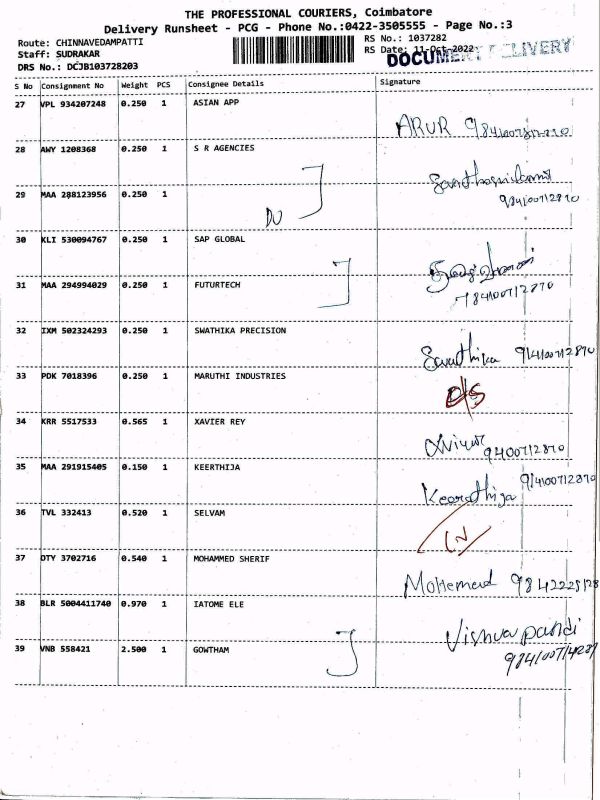 THE PROFESSIONAL COURIERS, Coimbatore
Delivery Runsheet - PCG - Phone No.:0422-3505555 - Page No.:3
Route: CHINNAVEDAMPATTI
RS No.: 1037282
Staff: SUDRAKAR
RS Date: 11-Oct-2022
DOCUMENT DELIVERY
DRS No.: DCJB103728203
S No Consignment No Weight PCS Consignee Details Signature
27 VPL 934207248 0.250 1 ASIAN APP
ARUR
28 AWY 1208368 0.250 1 S R AGENCIES
29 MAA 288123956 0.250 1
984100712870
DU
30 KLI 530094767 0.250 1 SAP GLOBAL
31 MAA 294994029 0.250 1 FUTURTECH
984100712870
32 IXM 502324293 0.250 1 SWATHIKA PRECISION
Swathika 914100712870
33 PDK 7018396 0.250 1 MARUTHI INDUSTRIES
D/S
34 KRR 5517533 0.565 1 XAVIER REY
94100712870
35 MAA 291915405 0.150 1 KEERTHIJA
914100712870
Keerthiga
36 TVL 332413 0.520 1 SELVAM
37 DTY 3702716 0.540 1 MOHAMMED SHERIF
Mohemed
38 BLR 5004411740 0.970 1 IATOME ELE
Vishva pandi
39 VNB 558421 2.500 1 GOWTHAM